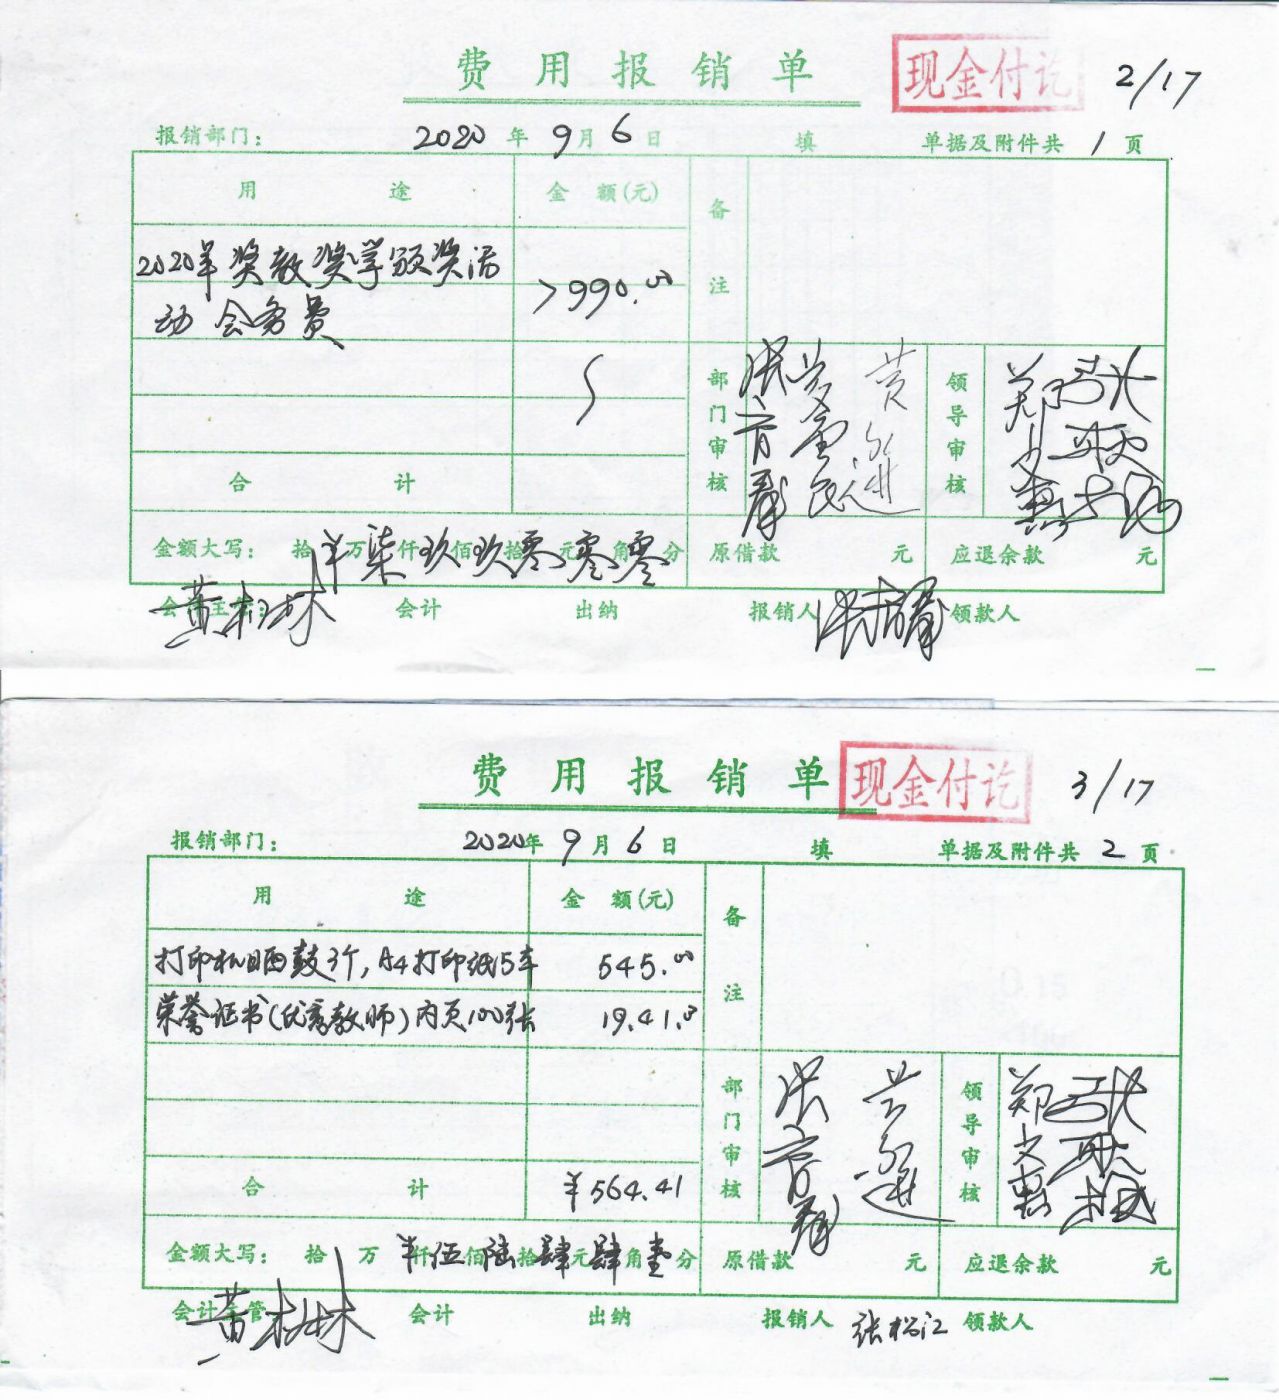 费用报销单
现金付讫
2/17
报销部门： 2020年9月6日 填 单据及附件共1页
用途 金额(元) 备注
2020年奖教奖学颁奖活
动会务费 7990.00
部门审核 领导审核
合计
金额大写： 拾¥万柒仟玖佰玖拾零元零角零分 原借款 元 应退余款 元
会计主管： 黄 林 会计 出纳 报销人 领款人
费用报销单
现金付讫
3/17
报销部门： 2020年9月6日 填 单据及附件共2页
用途 金额(元) 备注
打印机硒鼓3个，A4打印纸5车 545.00
荣誉证书(优秀教师)内页100张 19.41
部门审核 领导审核
合计 ¥564.41
金额大写： 拾万¥仟伍佰陆拾肆元肆角壹分 原借款 元 应退余款 元
会计主管 黄 林 会计 出纳 报销人 张松江 领款人